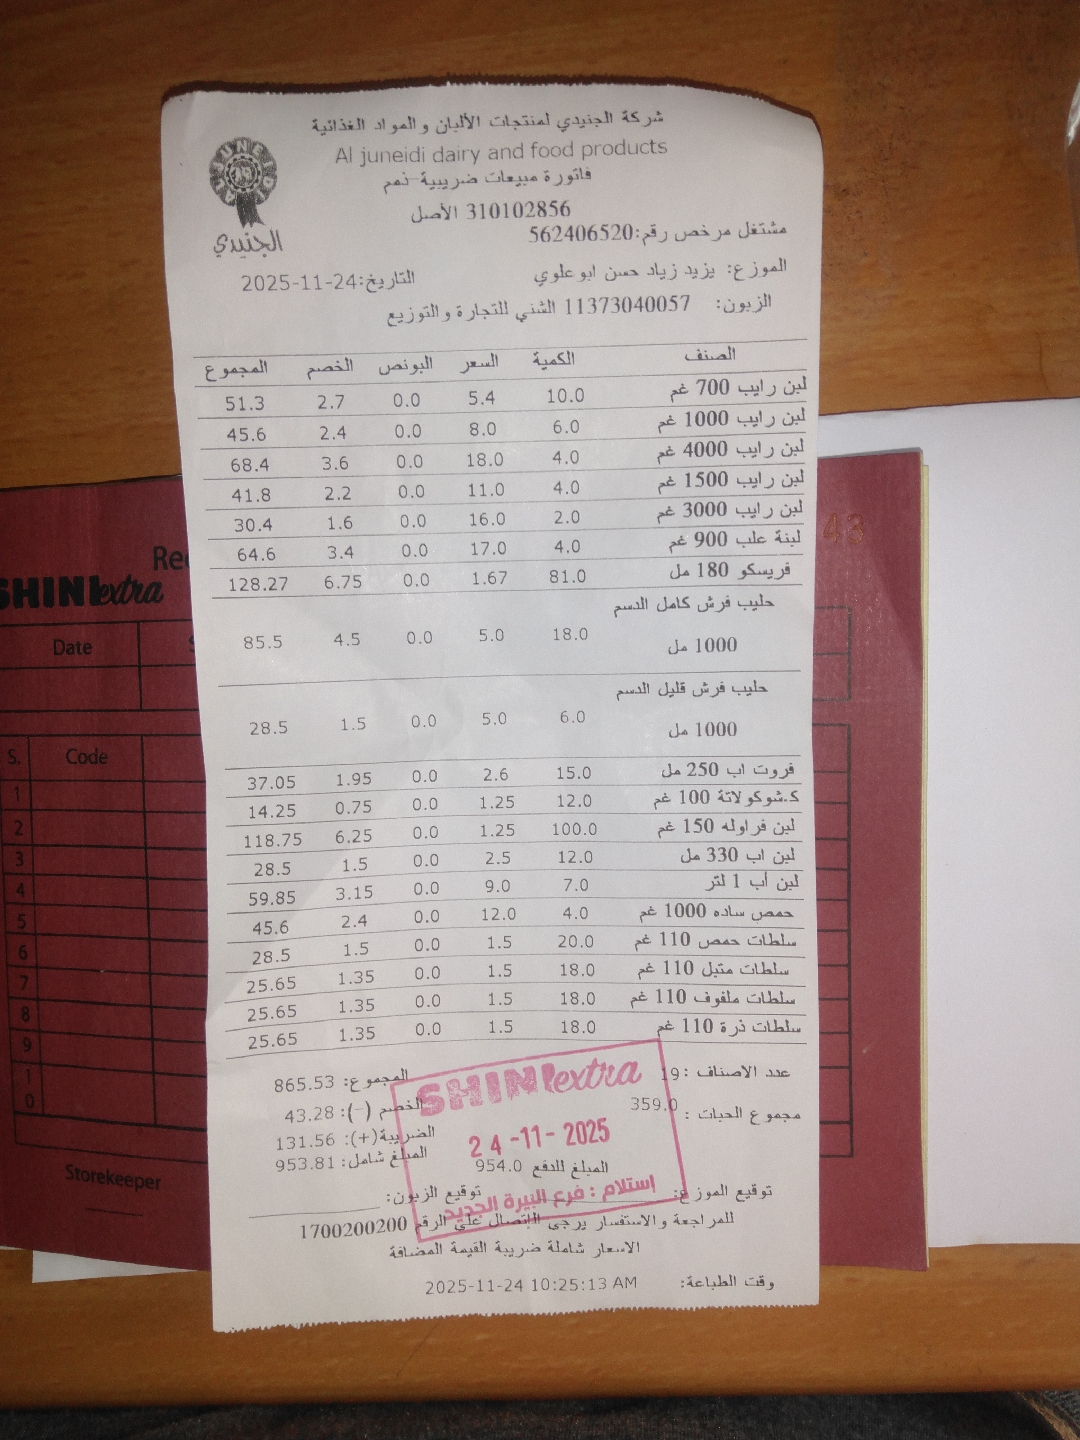 شركة الجنيدي لمنتجات الألبان والمواد الغذائية
Al juneidi dairy and food products
فاتورة مبيعات ضريبية-نمم
310102856 الأصل
مشتغل مرخص رقم:562406520
AL JUNEIDI
الجنيدي
الموزع: يزيد زياد حسن ابو علوي
التاريخ:24-11-2025
الزبون: 11373040057 الشني للتجارة والتوزيع
الصنف الكمية السعر البونص الخصم المجموع
لبن رايب 700 غم 10.0 5.4 0.0 2.7 51.3
لبن رايب 1000 غم 6.0 8.0 0.0 2.4 45.6
لبن رايب 4000 غم 4.0 18.0 0.0 3.6 68.4
لبن رايب 1500 غم 4.0 11.0 0.0 2.2 41.8
لبن رايب 3000 غم 2.0 16.0 0.0 1.6 30.4
لبنة علب 900 غم 4.0 17.0 0.0 3.4 64.6
فريسكو 180 مل 81.0 1.67 0.0 6.75 128.27
حليب فرش كامل الدسم
1000 مل 18.0 5.0 0.0 4.5 85.5
حليب فرش قليل الدسم
1000 مل 6.0 5.0 0.0 1.5 28.5
فروت اب 250 مل 15.0 2.6 0.0 1.95 37.05
ك.شوكولاتة 100 غم 12.0 1.25 0.0 0.75 14.25
لبن فراوله 150 غم 100.0 1.25 0.0 6.25 118.75
لبن اب 330 مل 12.0 2.5 0.0 1.5 28.5
لبن أب 1 لتر 7.0 9.0 0.0 3.15 59.85
حمص ساده 1000 غم 4.0 12.0 0.0 2.4 45.6
سلطات حمص 110 غم 20.0 1.5 0.0 1.5 28.5
سلطات متبل 110 غم 18.0 1.5 0.0 1.35 25.65
سلطات ملفوف 110 غم 18.0 1.5 0.0 1.35 25.65
سلطات ذرة 110 غم 18.0 1.5 0.0 1.35 25.65
عدد الاصناف :19
المجموع: 865.53
مجموع الحبات : 359.0
الخصم (-): 43.28
الضريبة(+): 131.56
المبلغ شامل: 953.81
المبلغ للدفع 954.0
توقيع الموزع:
توقيع الزبون:
للمراجعة والاستفسار يرجى الاتصال على الرقم 1700200200
الاسعار شاملة ضريبة القيمة المضافة
وقت الطباعة: 2025-11-24 10:25:13 AM
SHINI extra
24-11-2025
إستلام : فرع البيرة الجديد
SHINI extra
Date
S. Code
1
2
3
4
5
6
7
8
9
10
Storekeeper
43